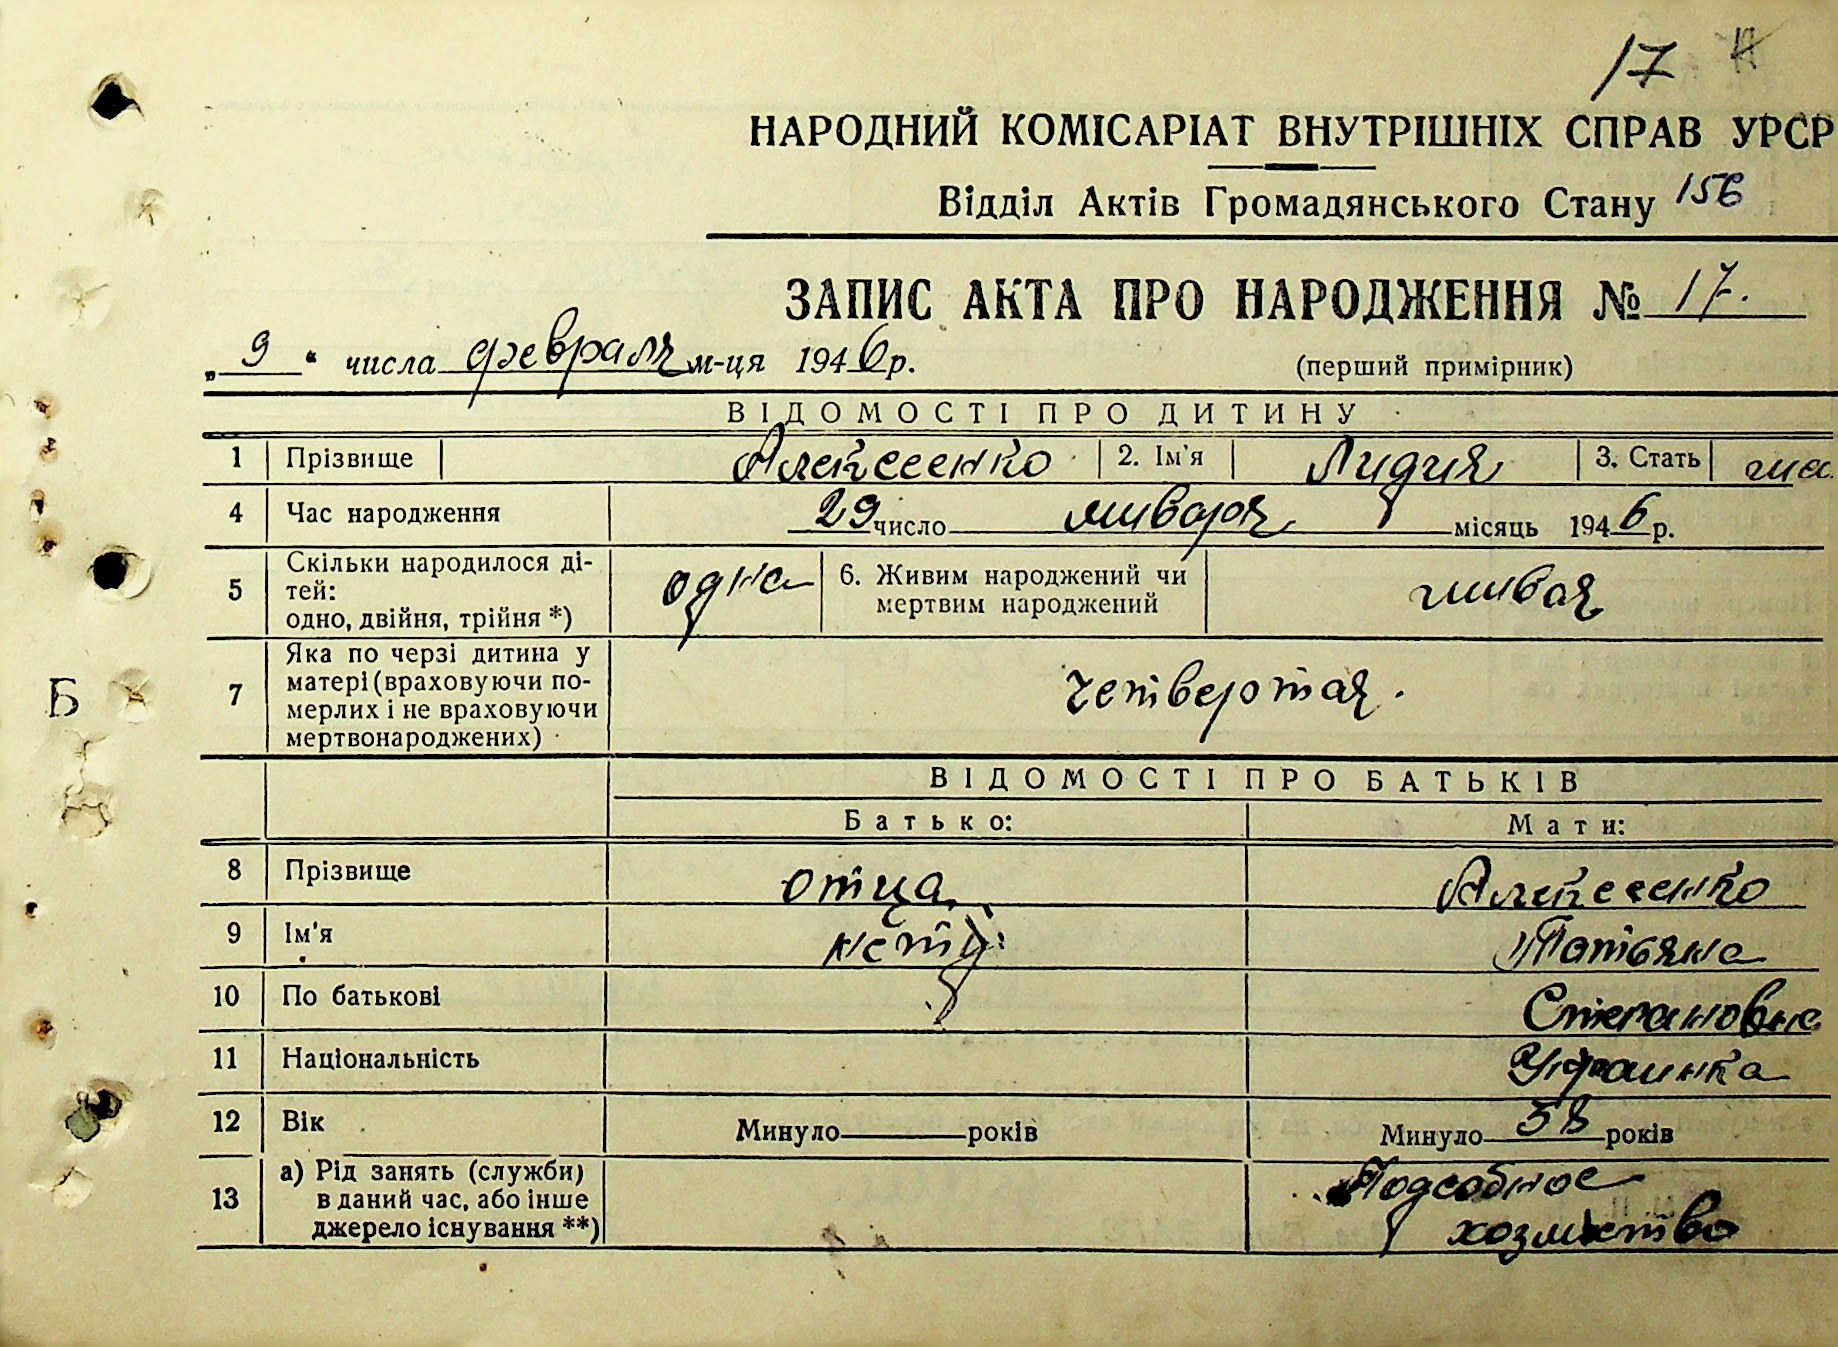 17
НАРОДНИЙ КОМІСАРІАТ ВНУТРІШНІХ СПРАВ УРСР
Відділ Актів Громадянського Стану 156
ЗАПИС АКТА ПРО НАРОДЖЕННЯ № 17.
„ 9 “ числа февраля м-ця 1946 р.
(перший примірник)
ВІДОМОСТІ ПРО ДИТИНУ
1 Прізвище Алексеенко 2. Ім'я Лидия 3. Стать
4 Час народження 29 число января місяць 1946 р.
5 Скільки народилося ді-
тей:
одно, двійня, трійня *) одна 6. Живим народжений чи
мертвим народжений живая
7 Яка по черзі дитина у
матері (враховуючи по-
мерлих і не враховуючи
мертвонароджених) четвертая.
Б
ВІДОМОСТІ ПРО БАТЬКІВ
Батько: Мати:
8 Прізвище отца Алексеенко
9 Ім'я нету Татьяна
10 По батькові Степановна
11 Національність Украинка
12 Вік Минуло років Минуло 38 років
13 а) Рід занять (служби)
в даний час, або інше
джерело існування **) Подсобное
хозяйство